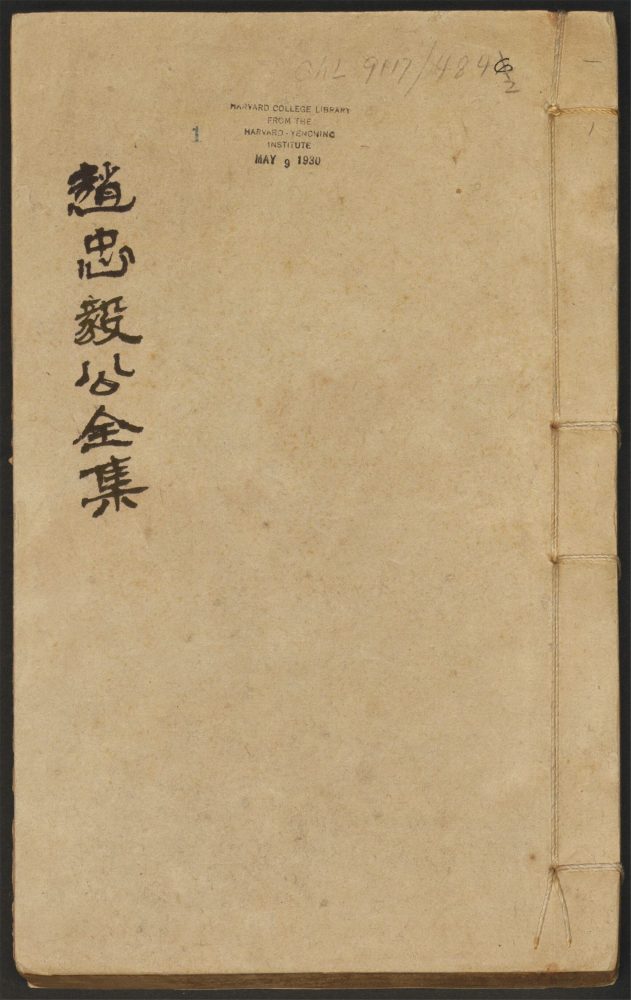 趙忠毅公全集
1
HARVARD COLLEGE LIBRARY
FROM THE
HARVARD-YENCHING
INSTITUTE
MAY 9 1930